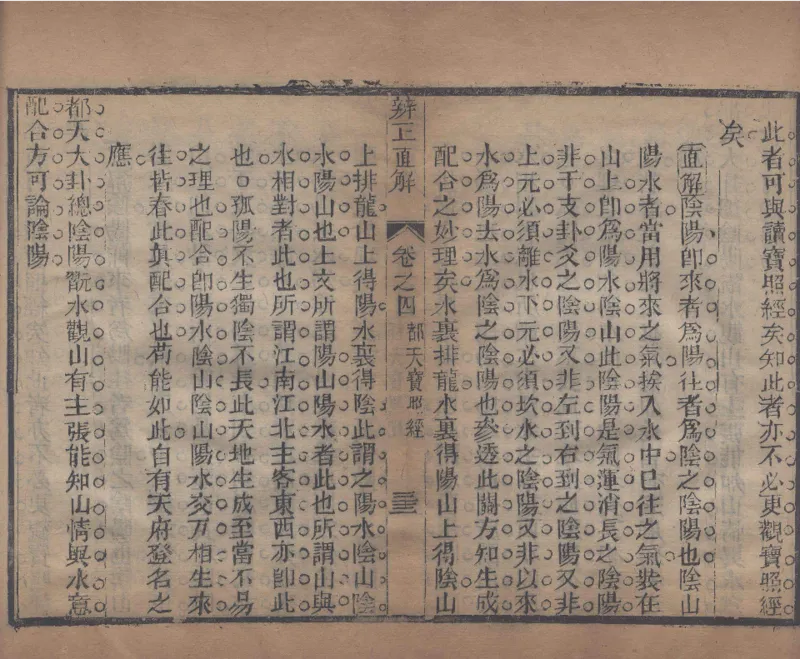 此者可與讀寶照經矣知此者亦不必更觀寶照經
矣
直解陰陽卽來者爲陽往者爲陰之陰陽也陰山
陽水者當用將來之氣挨入水中已往之氣裝在
山上卽爲陽水陰山此陰陽是氣運消長之陰陽
非干支卦爻之陰陽又非左到右到之陰陽又非
上元必須離水下元必須坎水之陰陽又非以來
水爲陽去水爲陰之陰陽也參透此關方知生成
配合之妙理矣水裏排龍水裏得陽山上得陰山
辨正直解
卷之四
都天寶照經
三三
上排龍山上得陽水裏得陰此謂之陽水陰山陰
水陽山也上文所謂陽山陽水者此也所謂山與
水相對者此也所謂江南江北主客東西亦卽此
也孤陽不生獨陰不長此天地生成至當不易
之理也配合卽陽水陰山陰山陽水交互相生來
往皆春此眞配合也苟能如此自有天府登名之
應
都天大卦總陰陽翫水觀山有主張能知山情與水意
配合方可論陰陽